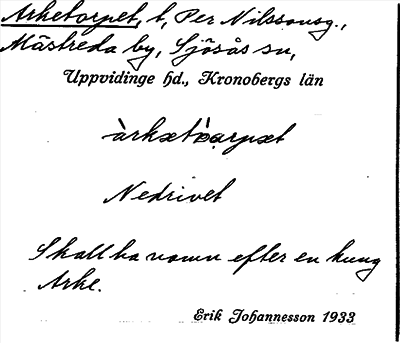 Arketorpet, t, Per Nilssonsg.,
Mästreda by, Sjösås sn,
Uppvidinge hd., Kronobergs län
àrkætòarpæt
Nedrivet
Skall ha namn efter en kung
Arke.
Erik Johannesson 1933